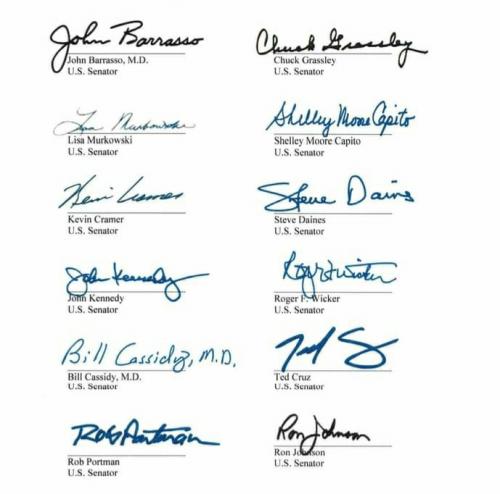 John Barrasso Chuck Grassley
John Barrasso, M.D. Chuck Grassley
U.S. Senator U.S. Senator
Lisa Murkowski Shelley Moore Capito
Lisa Murkowski Shelley Moore Capito
U.S. Senator U.S. Senator
Kevin Cramer Steve Daines
Kevin Cramer Steve Daines
U.S. Senator U.S. Senator
John Kennedy Roger F. Wicker
John Kennedy Roger F. Wicker
U.S. Senator U.S. Senator
Bill Cassidy, M.D. Ted
Bill Cassidy, M.D. Ted Cruz
U.S. Senator U.S. Senator
Rob Portman Ron Johnson
Rob Portman Ron Johnson
U.S. Senator U.S. Senator